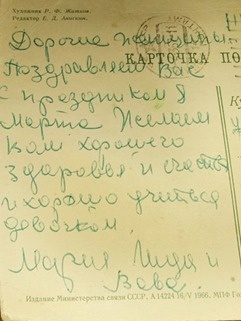 Художник Р. Ф. Житков
Редактор Е. Д. Анискин
Дорогие женщины
Поздравляем Вас
КАРТОЧКА ПО
с праздником 8
Марта Желаем
Вам хорошего
здоровья и счастья
и хорошо учиться
девочкам.
Мария Шура и
Вова.
Издание Министерства связи СССР. А 14224 16/V 1966. МПФ Го